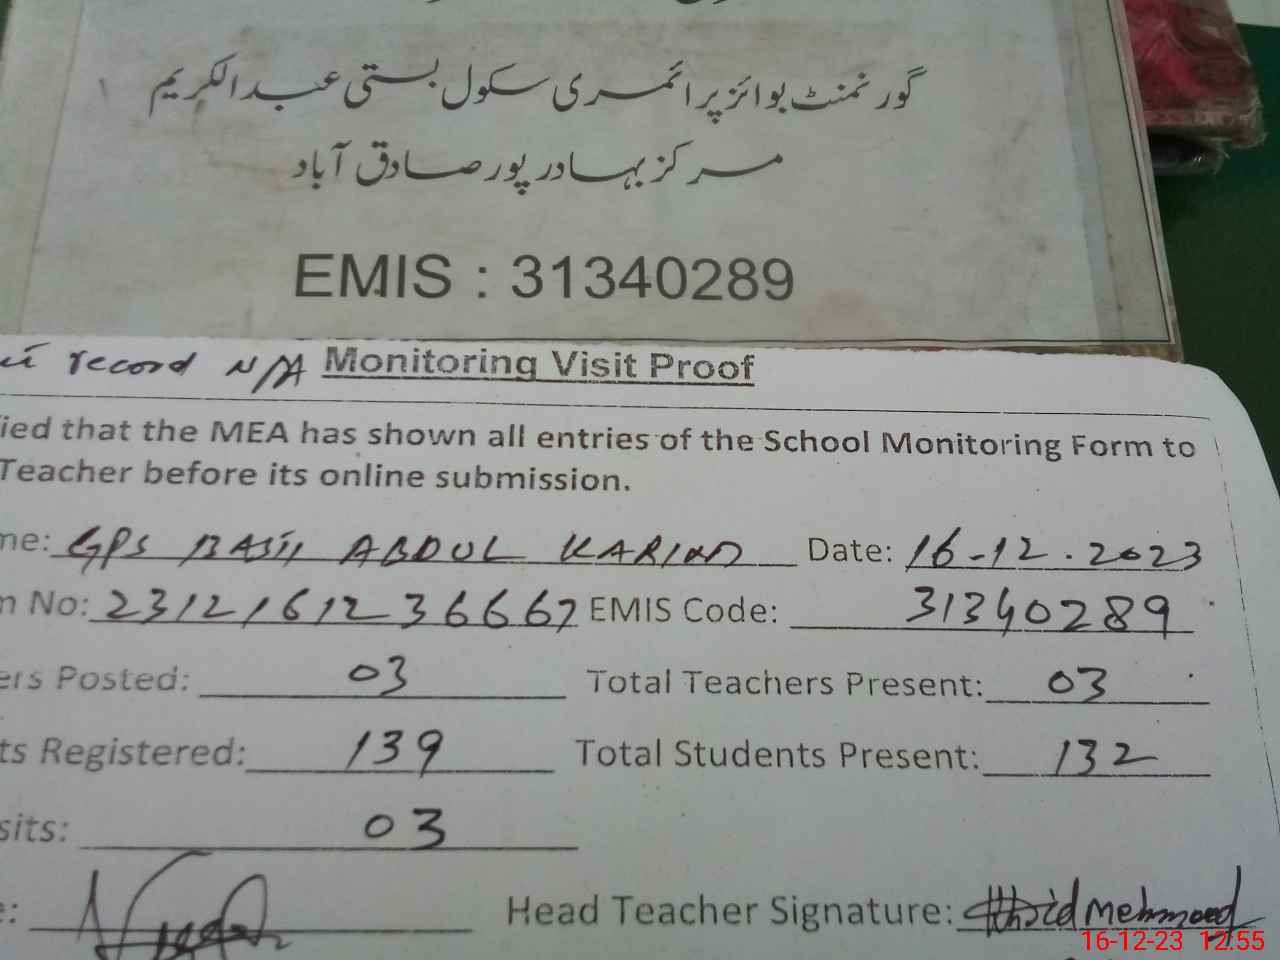 گورنمنٹ بوائز پرائمری سکول بستی عبدالکریم
مرکز بہادر پور صادق آباد
EMIS : 31340289
record N/A Monitoring Visit Proof
ied that the MEA has shown all entries of the School Monitoring Form to
Teacher before its online submission.
me: GPS BASTI ABDUL KARIM Date: 16-12.2023
n No: 2312161236667 EMIS Code: 31340289
ers Posted: 03 Total Teachers Present: 03
ts Registered: 139 Total Students Present: 132
sits: 03
e: Head Teacher Signature: Mehmood
16-12-23 12:55